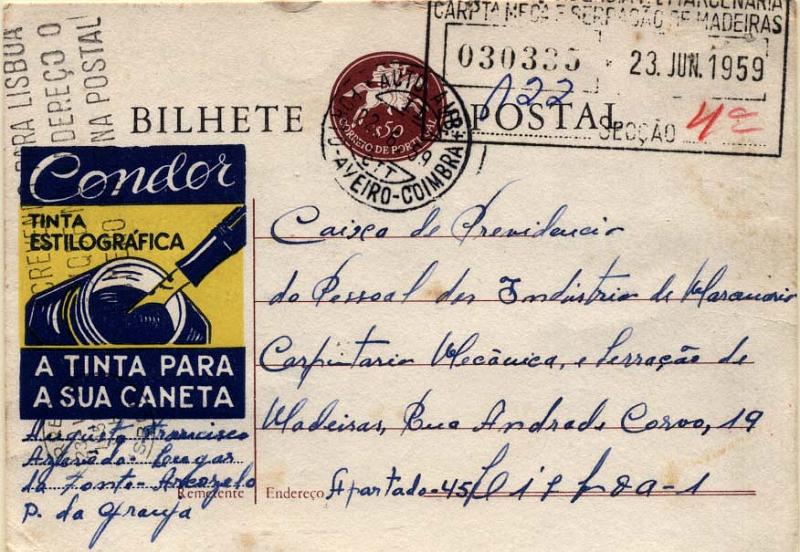 MARCENARIA
CARPTª MECª E SERRAÇÃO DE MADEIRAS
030335 23. JUN. 1959
122
SECÇÃO 4ª
PARA LISBOA
NA POSTAL
BILHETE POSTAL
$50
CORREIO DE PORTUGAL
AVEIRO-COIMBRA
Condor
TINTA
ESTILOGRÁFICA
A TINTA PARA
A SUA CANETA
Caixa de Previdencia
do Pessoal das Indústria de Marcenaria
Carpintaria Mecânica, e Serração de
Madeiras, Rua Andrade Corvo, 19
Apartado-45 Lisboa-1
Augusto Francisco
Azevedo Lugar
da Fonte-Arcozelo
P. da Granja
Remetente Endereço